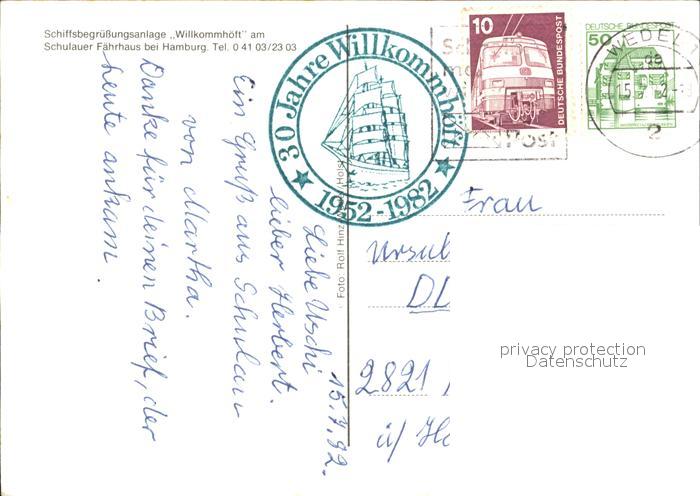 Schiffsbegrüßungsanlage „Willkommhöft" am
Schulauer Fährhaus bei Hamburg. Tel. 0 41 03/23 03
30 Jahre Willkommhöft
1952-1982
10
DEUTSCHE BUNDESPOST
DEUTSCHE BUNDESPOST
50
WEDEL
2
Post
Foto: Rolf Hinz
15.7.82.
Liebe Uschi
lieber Herbert.
Ein Gruß aus Schulau
von Martha.
Danke für deinen Brief, der
heute ankam.
Frau
Ursul
DL
2821
ü/ He
privacy protection
Datenschutz